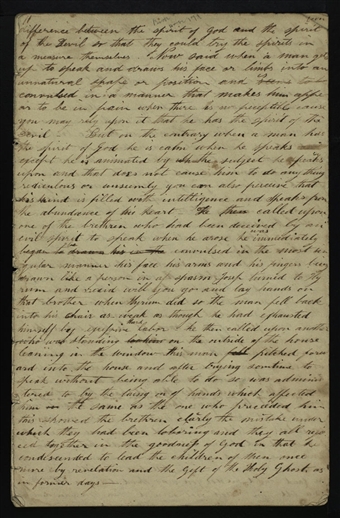 difference between the spirit of God and the spirit
of the Devil so that they could try the spirits in
a measure themselves. Now said when a man gets
up to speak and draws his face or limbs into an
unatural shape or position and
convulsed in a manner that makes him appe
ar to be in pain when there is no preceptible cause
you may rely upon it that he has the spirit of the
Devil. But on the contrary when a man has
the spirit of God he is calm when he speaks
except he is animated by the subject he speaks
upon and that does not cause him to do any thing
rediculous or unseemly you can also preceive that
his mind is filled with intelligence and speaks from
the abundance of his heart. He then called upon
one of the brethren who had been deceived by an
evil spirit to speak when he arose he was immediately
began to drawn his in the convulsed in the most sin
gular manner his face his arms and his fingers being
drawn like a person in a spasm Josep turned to Hy
rum and said will you go and lay hands on
that brother when Hyrum did so the man fell back
into his chair as weak as though he had exhausted
himself by labor. He then called upon another
who was standing on the outside of the house
leaning in the window this man pitched forw
ard into the house and after trying sometime to
speak without being able to do so was admini
stered to by the laying on of hands which affected
him the same as the one who preceided him
this showed the brethren clearly the mistake under
which they had been laboring and they all rejoi
ced together in the goodness of God in that he
condescended to lead the children of men once
more by revelation and the Gift of the Holy Ghost as
in former days—